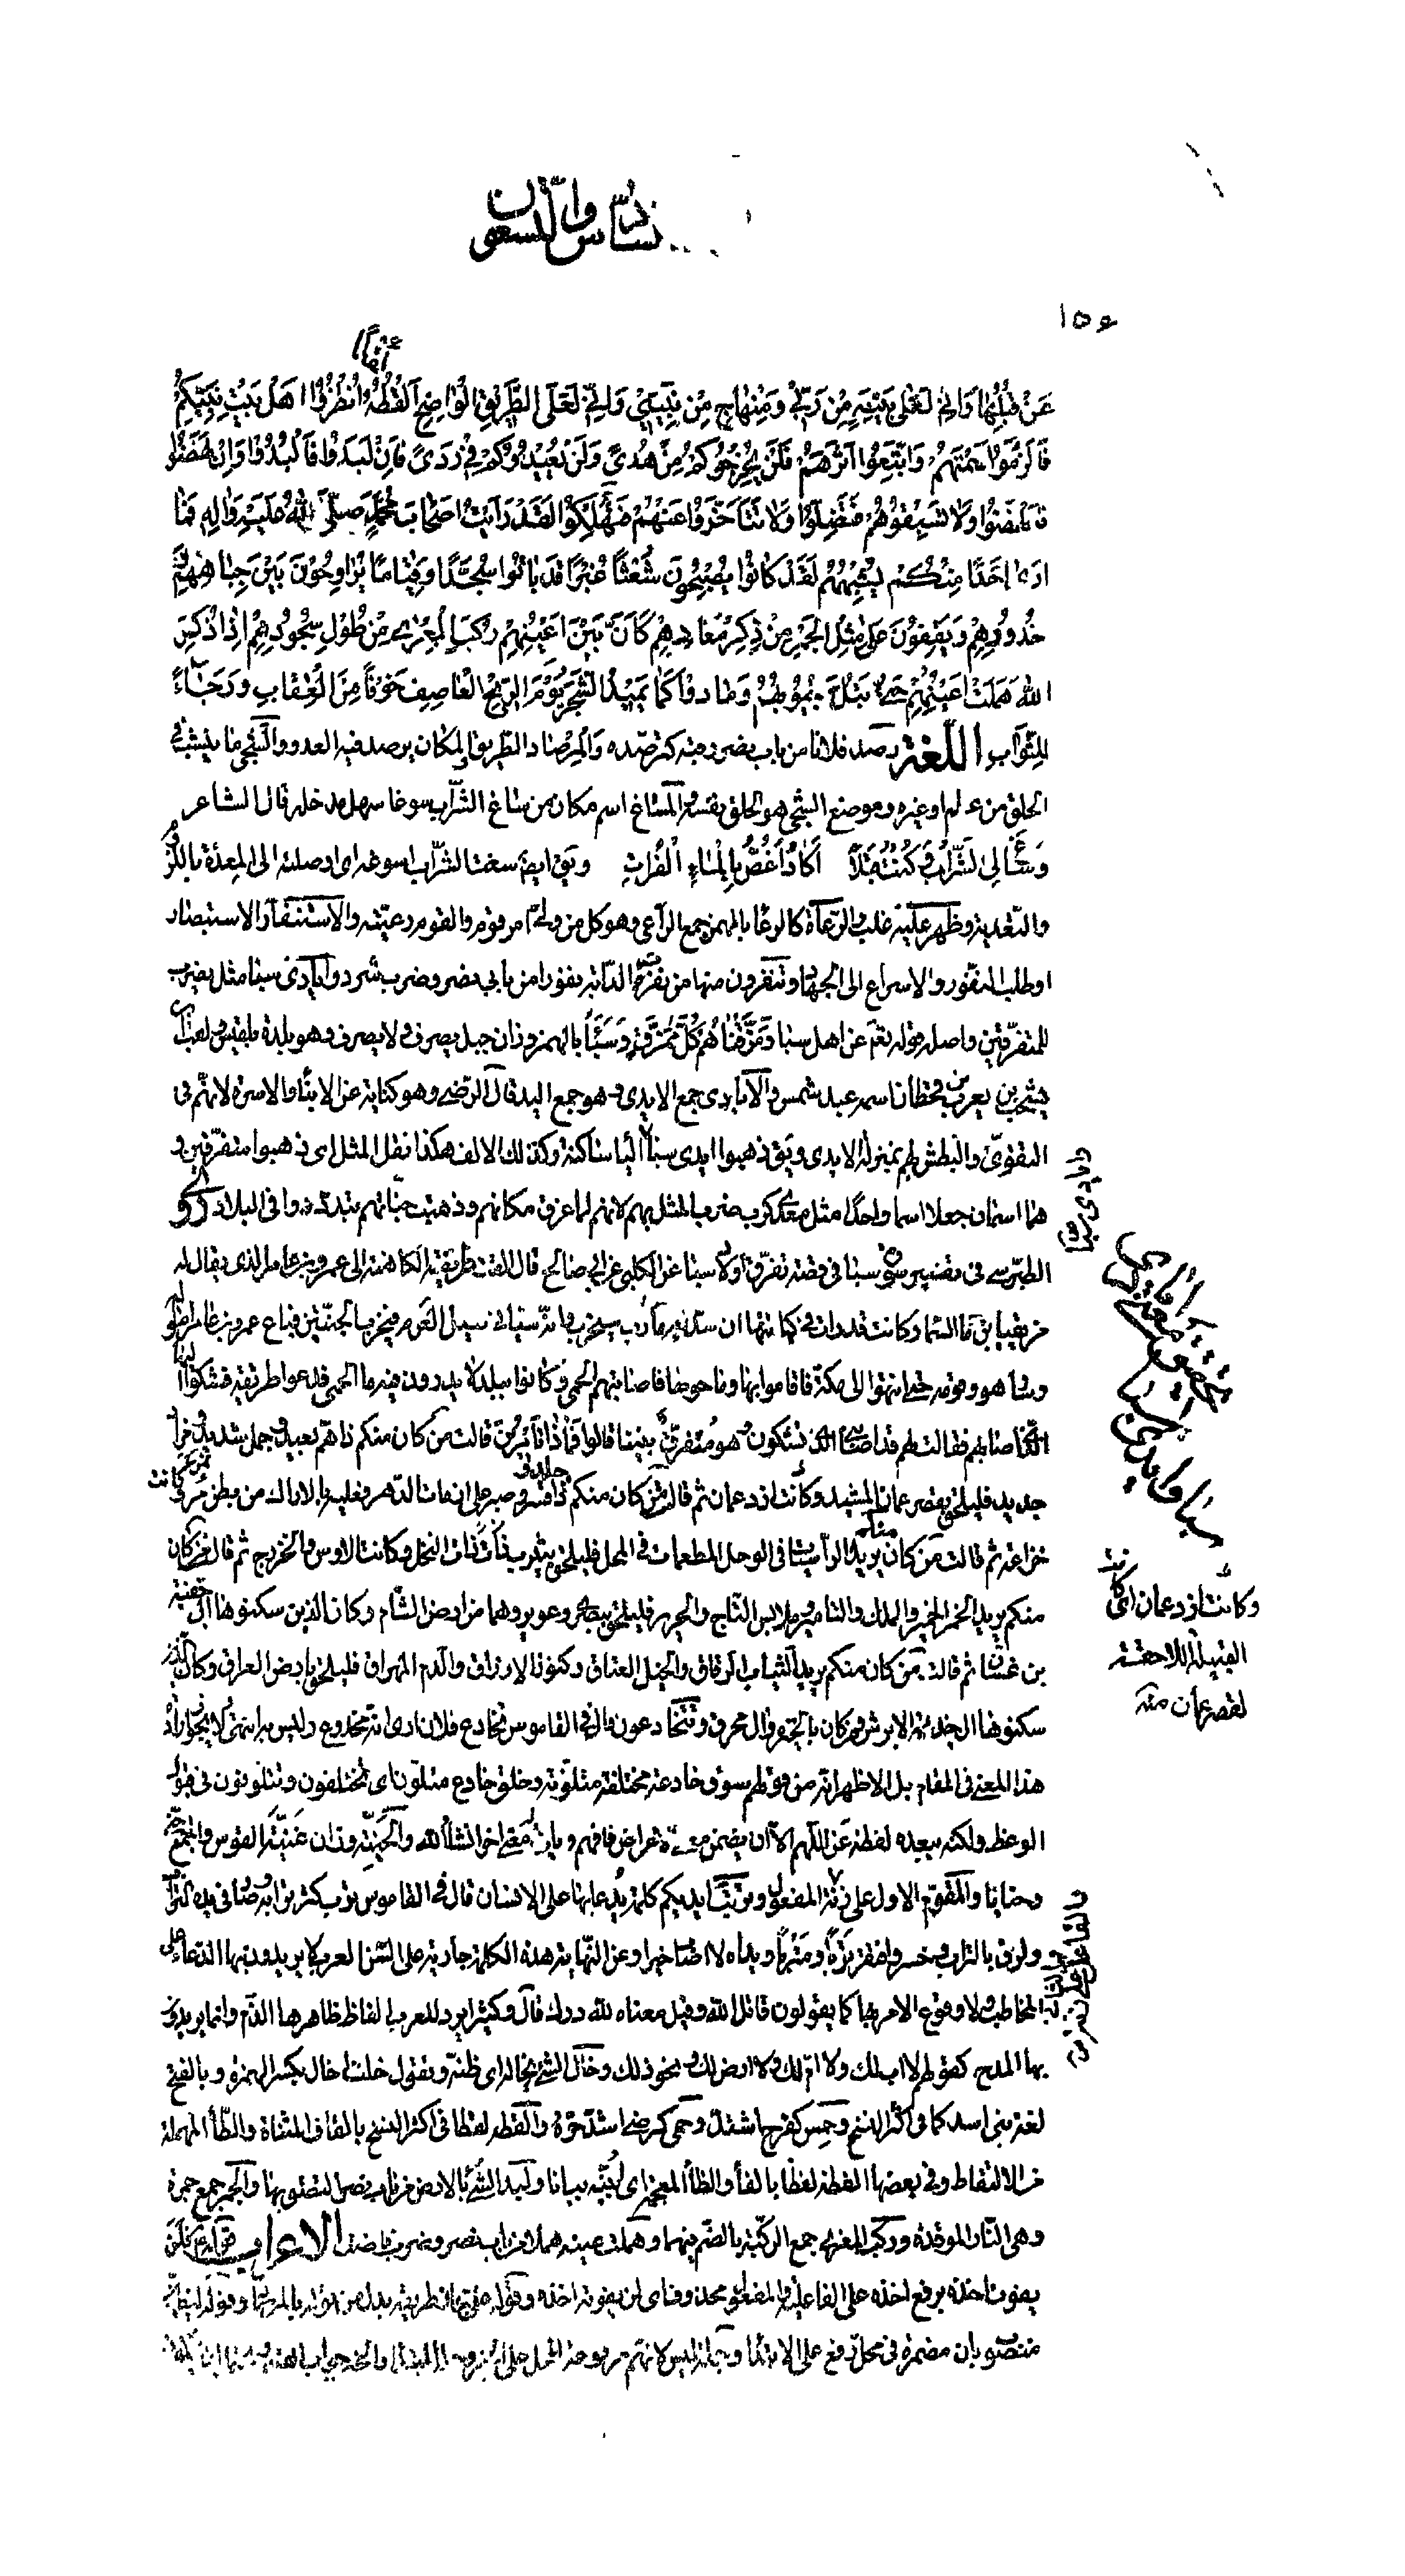 السادس والتسعون
١٥٤
عَنْ قَلْبِهَا وَاِنّي لَعَلى بَيِّنَةٍ مِنْ رَبّي وَمِنْهاجٍ مِنْ نَبِيّي وَاِنّي لَعَلَى الطَّريقِ الْواضِحِ اَلْقُطُهُ لَقْطًا اُنْظُرُوا اَهْلَ بَيْتِ نَبِيِّكُمْ
فَالْزَمُوا سَمْتَهُمْ وَاتَّبِعُوا اَثَرَهُمْ فَلَنْ يُخْرِجُوكُمْ مِنْ هُدًى وَلَنْ يُعيدُوكُمْ في رَدًى فَاِنْ لَبَدُوا فَالْبُدُوا وَاِنْ نَهَضُوا
فَانْهَضُوا وَلا تَسْبِقُوهُمْ فَتَضِلُّوا وَلا تَتَاَخَّرُوا عَنْهُمْ فَتَهْلِكُوا لَقَدْ رَاَيْتُ اَصْحابَ مُحَمَّدٍ صَلَّى اللهُ عَلَيْهِ وَالِهِ فَما
اَرى اَحَدًا مِنْكُمْ يُشْبِهُهُمْ لَقَدْ كانُوا يُصْبِحُونَ شُعْثًا غُبْرًا قَدْ باتُوا سُجَّدًا وَقِيامًا يُراوِحُونَ بَيْنَ جِباهِهِمْ وَ
خُدُودِهِمْ وَيَقِفُونَ عَلى مِثْلِ الْجَمْرِ مِنْ ذِكْرِ مَعادِهِمْ كَاَنَّ بَيْنَ اَعْيُنِهِمْ رُكَبَ الْمِعْزى مِنْ طُولِ سُجُودِهِمْ اِذا ذُكِرَ
اللهُ هَمَلَتْ اَعْيُنُهُمْ حَتّى تَبُلَّ جُيُوبَهُمْ وَمادُوا كَما يَميدُ الشَّجَرُ يَوْمَ الرّيحِ الْعاصِفِ خَوْفًا مِنَ الْعِقابِ وَرَجاءً
لِلثَّوابِ اللغة رصد فلانا من باب نصر رقبه كترصّده وَالمِرْصاد الطّريق والمكان يرصد فيه العدو والشّجى ما ينشب في
الحلق من عظم او غيره وموضع الشّجى هو الحلق نفسه والمَساغ اسم مكان من ساغ الشّراب سوغا سهل مدخله قال الشاعر
وَساغَ لِى الشَّرابُ وَكُنْتُ قَبْلاً اَكادُ اَغُصُّ بِالْماءِ الْفُراتِ ويق ايضا سغت الشّراب اسوغه اى اوصلته الى المعدة باللزوم و
والتعدية وظهر عليه غلب والرّعاة كالرعاء بالهمز جمع الرّاعى وهو كل من ولى امر قوم والقوم رعيّته والاستنفار الاستنصار
او طلب النفور والاسراع الى الجهاد وتنفرون منها من نفرت الدّابة نفورا من بابى نصر وضرب شرد وايادى سبا مثل يضرب
للمتفرّقين واصله قوله تع عن اهل سبا وَمَزَّقْناهُمْ كُلَّ مُمَزَّقٍ وَسَبَأ بالهمز وزان جبل يصرف ولا يصرف وهو بلدة بلقيس ولقب ابن
يشجب بن يعرب بن قحطان اسمه عبد شمس والايادى جمع الايدى وهو جمع اليد قال الرّضى وهو كناية عن الابناء والاسرة لانهم فى
التقوّى والبطش بهم بمنزلة الايدى ويق ذهبوا ايدى سبا الياء ساكنة وكذلك الالف هكذا نقل المثل اى ذهبوا متفرّقين و
هما اسمان جعلا اسما واحدا مثل معدى كرب ضرب المثل بهم لانهم لما غرق مكانهم وذهبت جنّاتهم تبدّدوا فى البلاد
الطبرسى فى تفسير سورة سبا فى قصة تفرّق اولاد سبا عن الكلبى عن ابى صالح قال القت طريفة الكاهنة الى عمرو بن عامر الذى يقال له
مزيقيا بن ماء السما وكانت قد رات فى كهانتها ان سدّ مارب سيخرب وانّه سياتى سيل العرم فيخرب الجنّتين فباع عمرو بن عامر امواله
وسار هو وقومه حتى انتهوا الى مكة فاقاموا بها وما حولها فاصابتهم الحمى وكانوا ببلد لا يدرون فيه ما الحمى فدعوا طريفة فشكوا اليها
الّذى اصابهم فقالت لهم قد اصابنى الذى تشكون وهو مُفَرِّق بيننا قالوا فَماذا تَأمُرينَ قالت من كان منكم ذا همّ بعيد وجمل شديد ومزاد
جديد فليلحق بقصر عمان المشيد وكانت ازد عمان ثم قالت من كان منكم ذا جلد وقسر وصبر على ازمات الدّهر فعليه بالاراك من بطن مَرّ وكانت
خزاعة ثم قالت من كان منكم يريد الرّاسيات فى الوحل المطعمات فى المحل فليلحق بيثرب ذات النخل وكانت الاوس والخزرج ثم قالت من كان
منكم يريد الخمر الخمير والملك والتامير وملابس التّاج والحرير فليلحق ببصرى وعوير وهما من ارض الشّام وكان الذين سكنوها ال جفنة
بن غسّان ثم قالت من كان منكم يريد الثياب الرّقاق والخيل العتاق وكنوز الارزاق والدّم المهراق فليلحق بارض العراق وكان الّذين
سكنوها ال جذيمة الابرش ومن كان بالحيرة وال محرق وتتخادعون قال فى القاموس تخادع فلان ارى انه مخدوع وليس به انتهى ولا يجوز ارادة
هذا المعنى فى المقام بل الاظهر انه من قولهم سوق خادعة مختلفة متلوّنة وخلق خادع متلوّن اى تختلفون وتتلونون فى قبول
الوعظ ولكنه يبعده لفظة عن اللّهم الاّ ان يضمن معنى الاعراض فافهم وياتى معنى اخر انشاء الله والحنيّة وزان غَنِيَّة القوس والجمع حنىّ
وحنايا والمقوّم الاول على زنة المفعول وتربت ايديكم كلمة يُدعا بها على الانسان قال فى القاموس ترب كثر ترابه وصار فى يده التراب
ولزق بالتراب وخسر وافتقر تَرَبًا ومَتْرَبًا ويداه لا اصاب خيرا وعن النّهاية هذه الكلمة جارية على السنة العرب لا يريدون بها الدّعاء على
المخاطب ولا وقوع الامر بها كما يقولون قاتل الله وقيل معناه لله درك قال وكثيرا يرد للعرب الفاظ ظاهرها الذّم وانما يريدون
بها المدح كقولهم لا اب لك ولا امّ لك ولا ارض لك ونحو ذلك وخال الشّئ يخاله اى ظنّه وتقول خلت اخال بكسر الهمزة وبالفتح
لغة بنى اسد كما فى اكثر النسخ وحمِس كفرح اشتدّ وحمى كرضى اشتدّ حرّه والقطه لقطا فى اكثر النسخ بالقاف المثناة والطّاء المهملة
من الالتقاط وفى بعضها الفظه لفظا بالفاء والظاء المعجمة اى ابيّنه بيانا ولبد الشّئ بالارض من باب نصر لتصق بها والجمر جمع جمرة
وهى النّار الموقدة وركب المعزى جمع الركبة بالضّم فيهما وهملت عينه هملا من باب نصر وضرب فاضت الاعراب قوله فلن
يفوت اخذه برفع اخذه على الفاعلية والمفعول محذوف اى لن يفوته اخذه وقوله على مجاز طريقه بدل من قوله بالمرصاد وقوله
منصوب بان مضمرة فى محل رفع على الابتداء
وكانت ازد عمان اى كانت
القبيلة اللاحقة
لقصر عمان منه